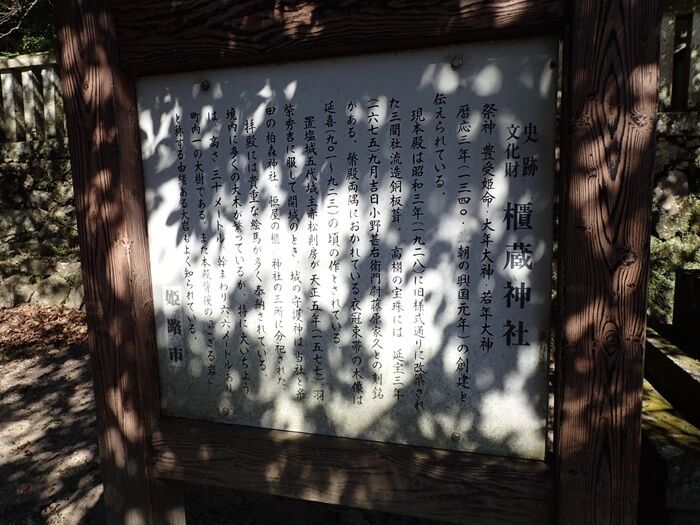 史跡
文化財
櫃蔵神社
祭神 豊受姫命・大年大神・若年大神
暦応三年(一三四〇・ 朝の興国元年)の創建と
伝えられている。
現本殿は昭和三年(一九二八)に旧様式通りに改築され
た三間社流造銅板葺。高欄の宝珠には 延宝三年
(一六七五)九月吉日小野甚右衛門尉藤原家久との刻銘
がある。幣殿両隅におかれている衣冠束帯の木像は
延喜(九〇一〜九二三)の頃の作とされている。
置塩城五代城主赤松則房が天正五年(一五七七)羽
柴秀吉に服して開城のとき、城の守護神は当社と
田の柏森神社、恒屋の 神社の三所に分祀された。
拝殿には貴重な絵馬が多く奉納されている。
境内に多くの大木が繁っているが、特に大いちょう
は、高さ三十メートル、幹まわり六・六メートルあり
町内一の大樹である。また本殿背後の
と称する由緒ある大岩もよく知られている。
姫路市